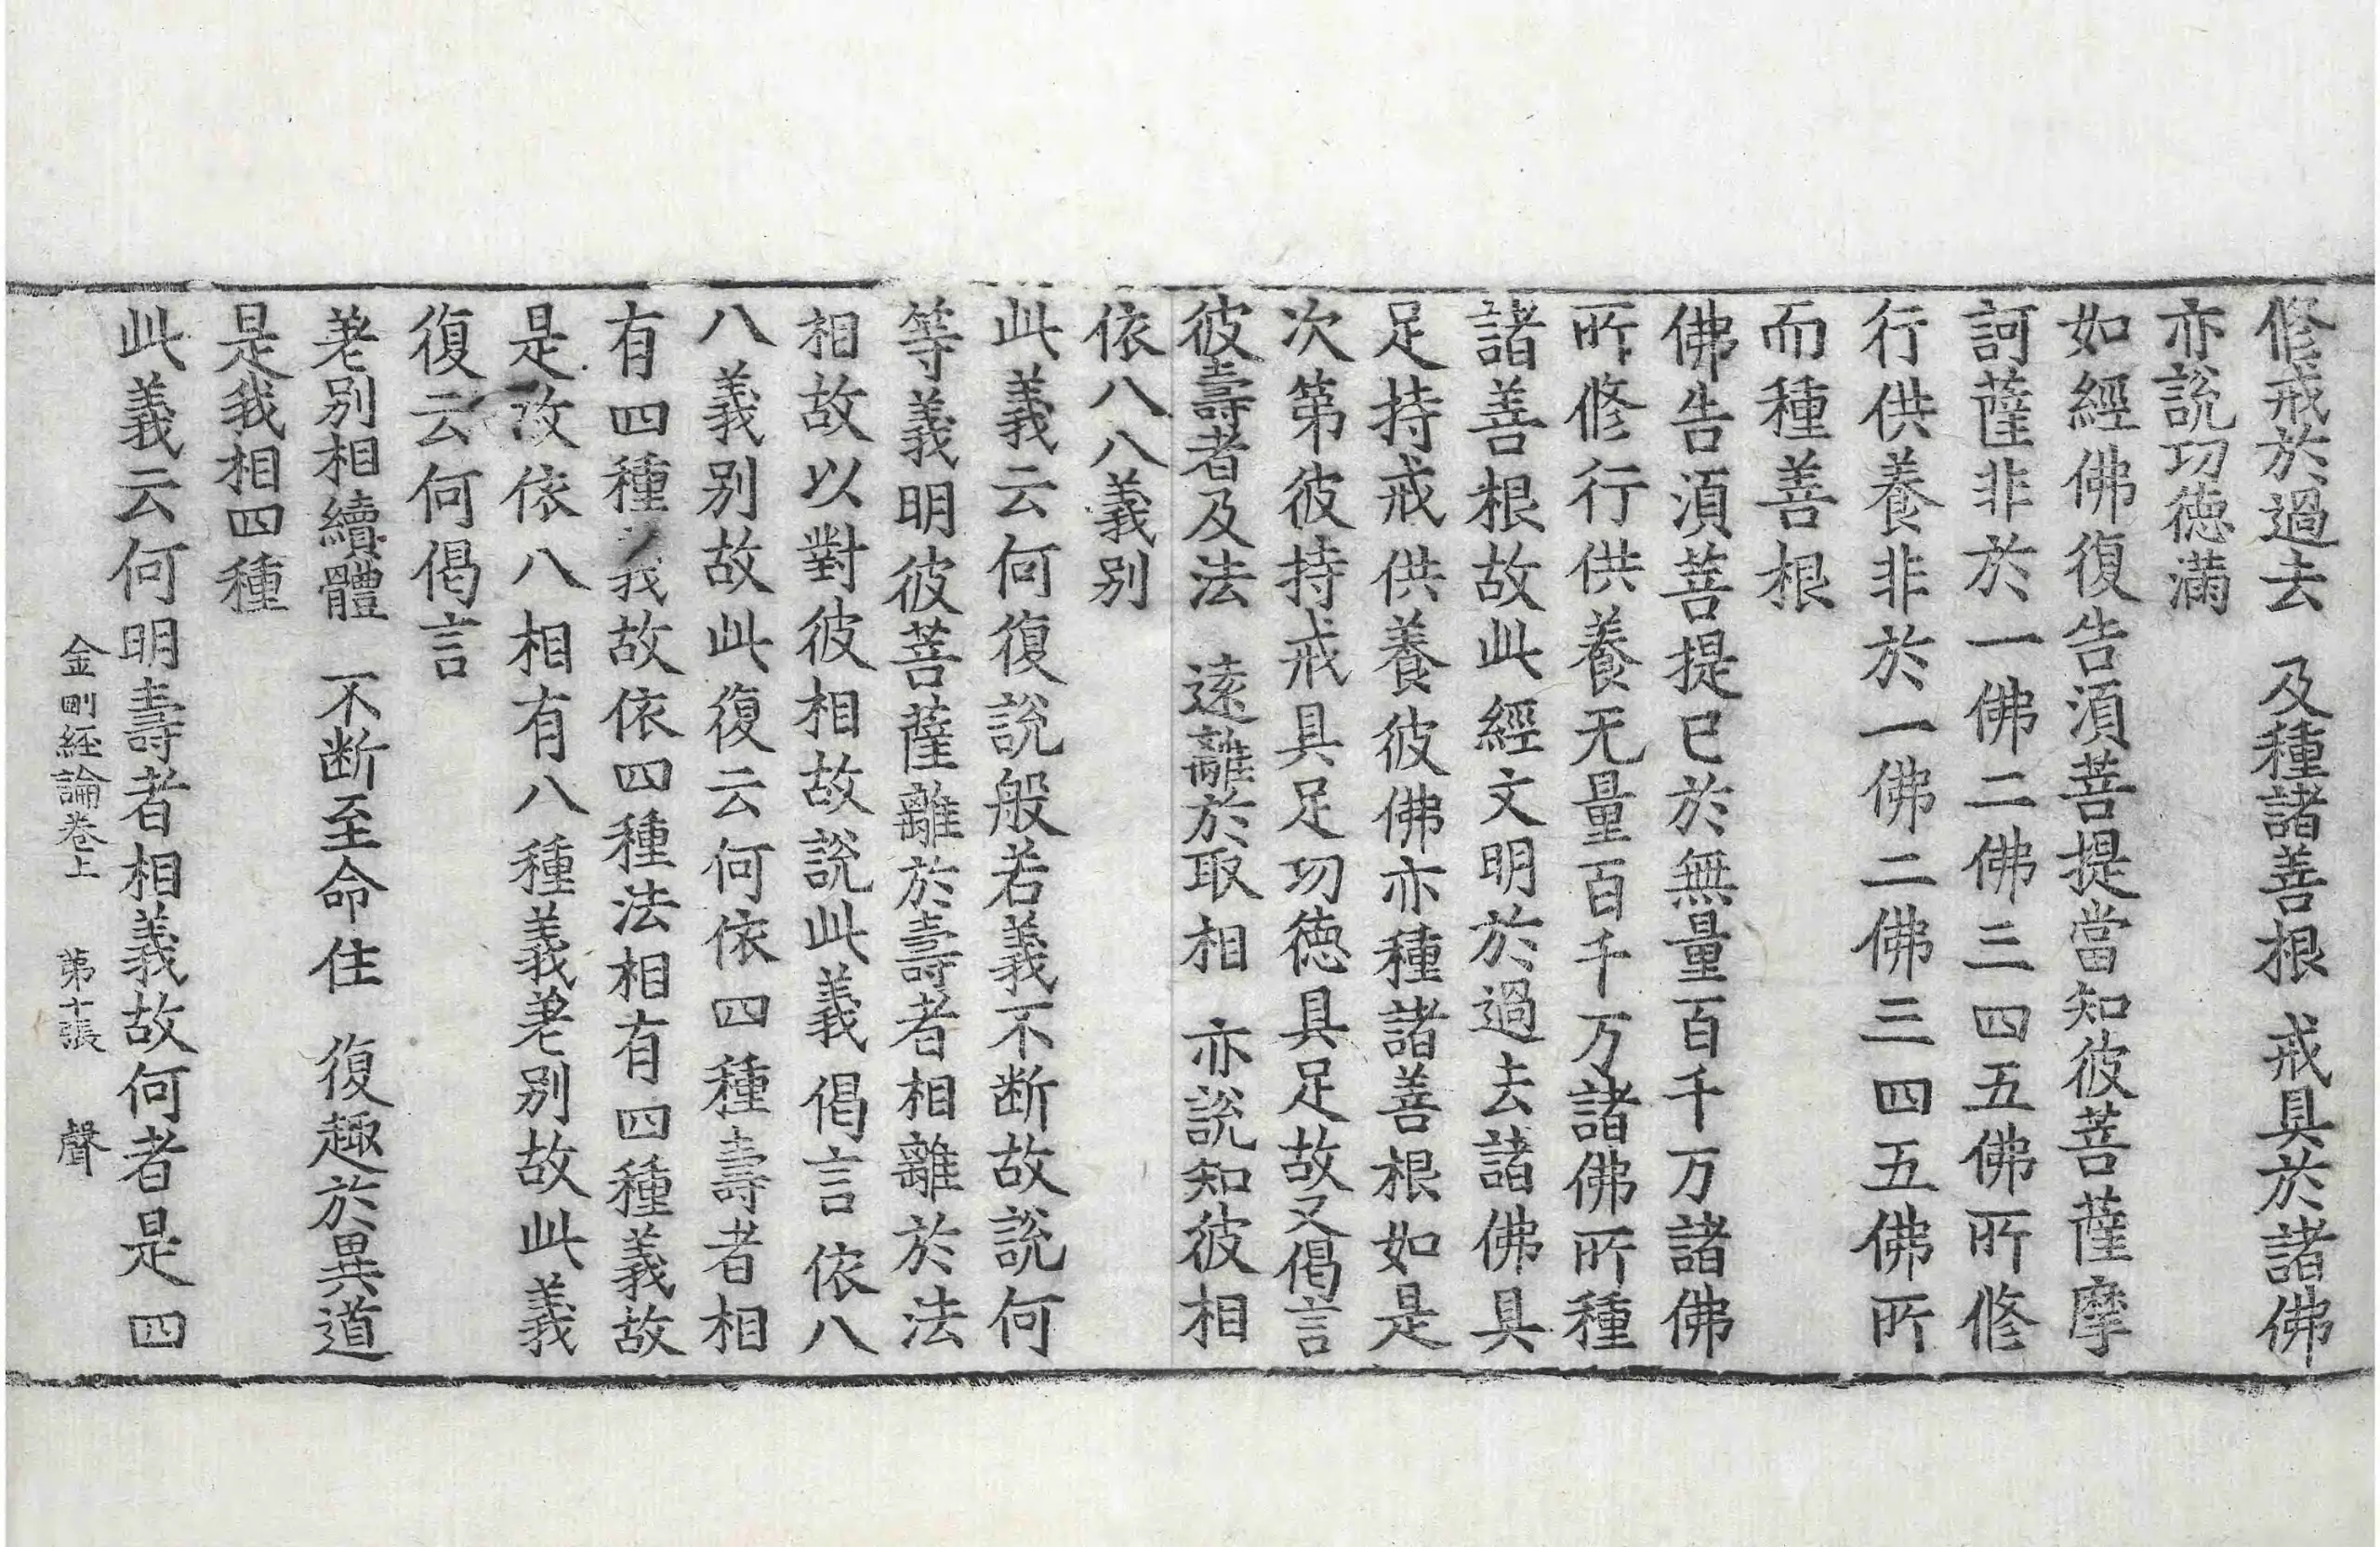 修戒於過去　及種諸善根　戒具於諸佛
亦說功德滿
如經佛復告須菩提當知彼菩薩摩
訶薩非於一佛二佛三四五佛所修
行供養非於一佛二佛三四五佛所
而種善根
佛告須菩提已於無量百千万諸佛
所修行供養无量百千万諸佛所種
諸善根故此經文明於過去諸佛具
足持戒供養彼佛亦種諸善根如是
次第彼持戒具足功德具足故又偈言
彼壽者及法　遠離於取相　亦說知彼相
依八八義別
此義云何復說般若義不断故說何
等義明彼菩薩離於壽者相離於法
相故以對彼相故說此義偈言依八
八義別故此復云何依四種壽者相
有四種義故依四種法相有四種義故
是故依八相有八種義差別故此義
復云何偈言
差別相續體　不断至命住　復趣於異道
是我相四種
此義云何明壽者相義故何者是四
金剛經論卷上　第十張　聲